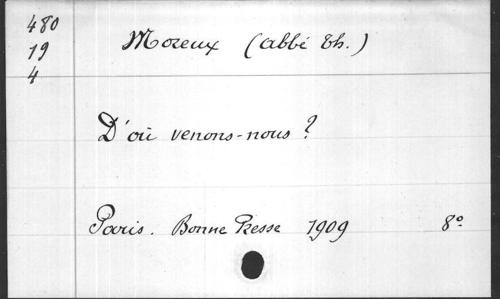 480
19
4
Moreux (abbé Th.)
D'où venons-nous ?
Paris. Bonne Presse 1909 8º